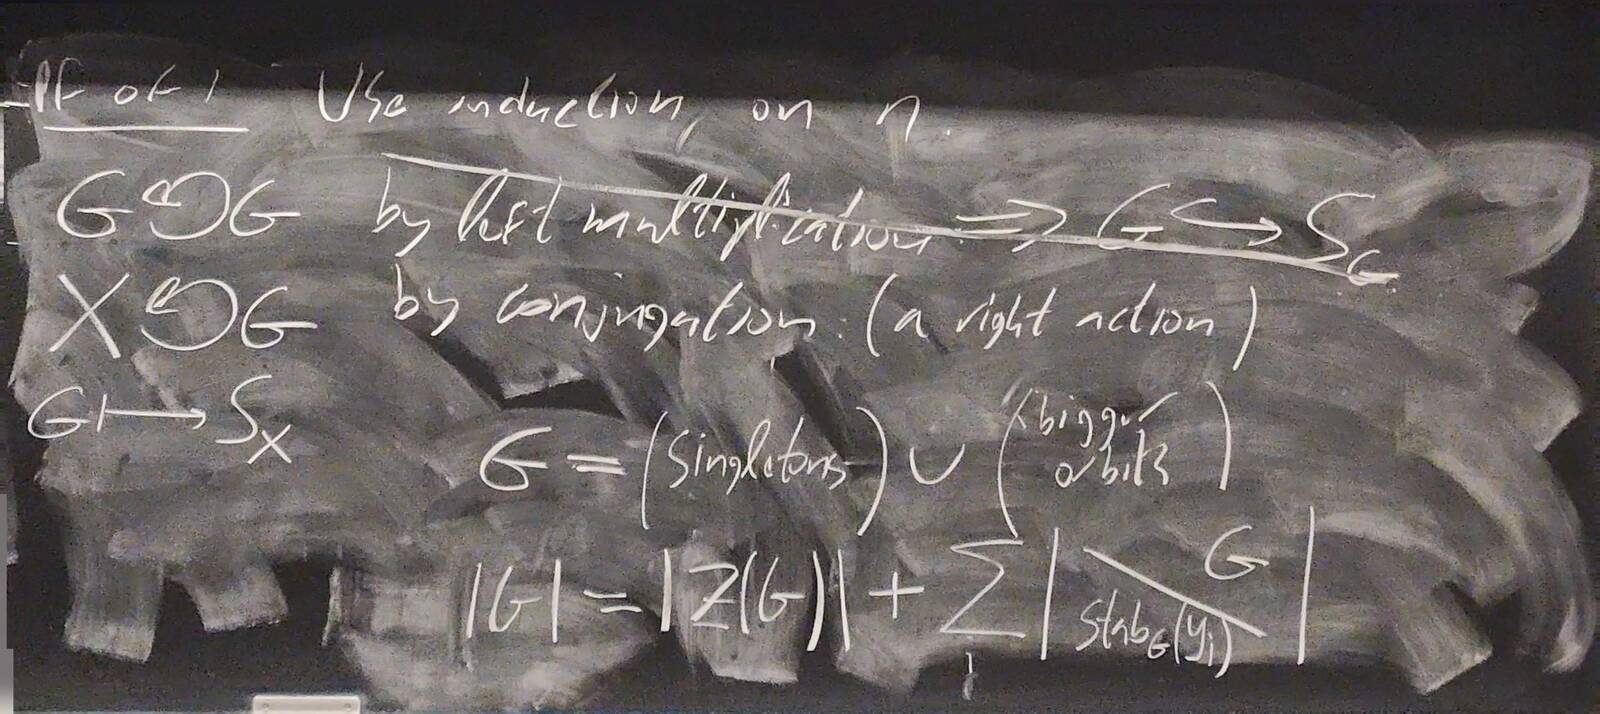 Pf of 1 Use induction on n.
G ↺ G by left multiplication ⇒ G ↪ S_G
X ↺ G by conjugation: (a right action)
G ↦ S_X
G = (singletons) ∪ (bigger orbits)
|G| = |Z(G)| + ∑_i | Stab_G(y_i) \ G |